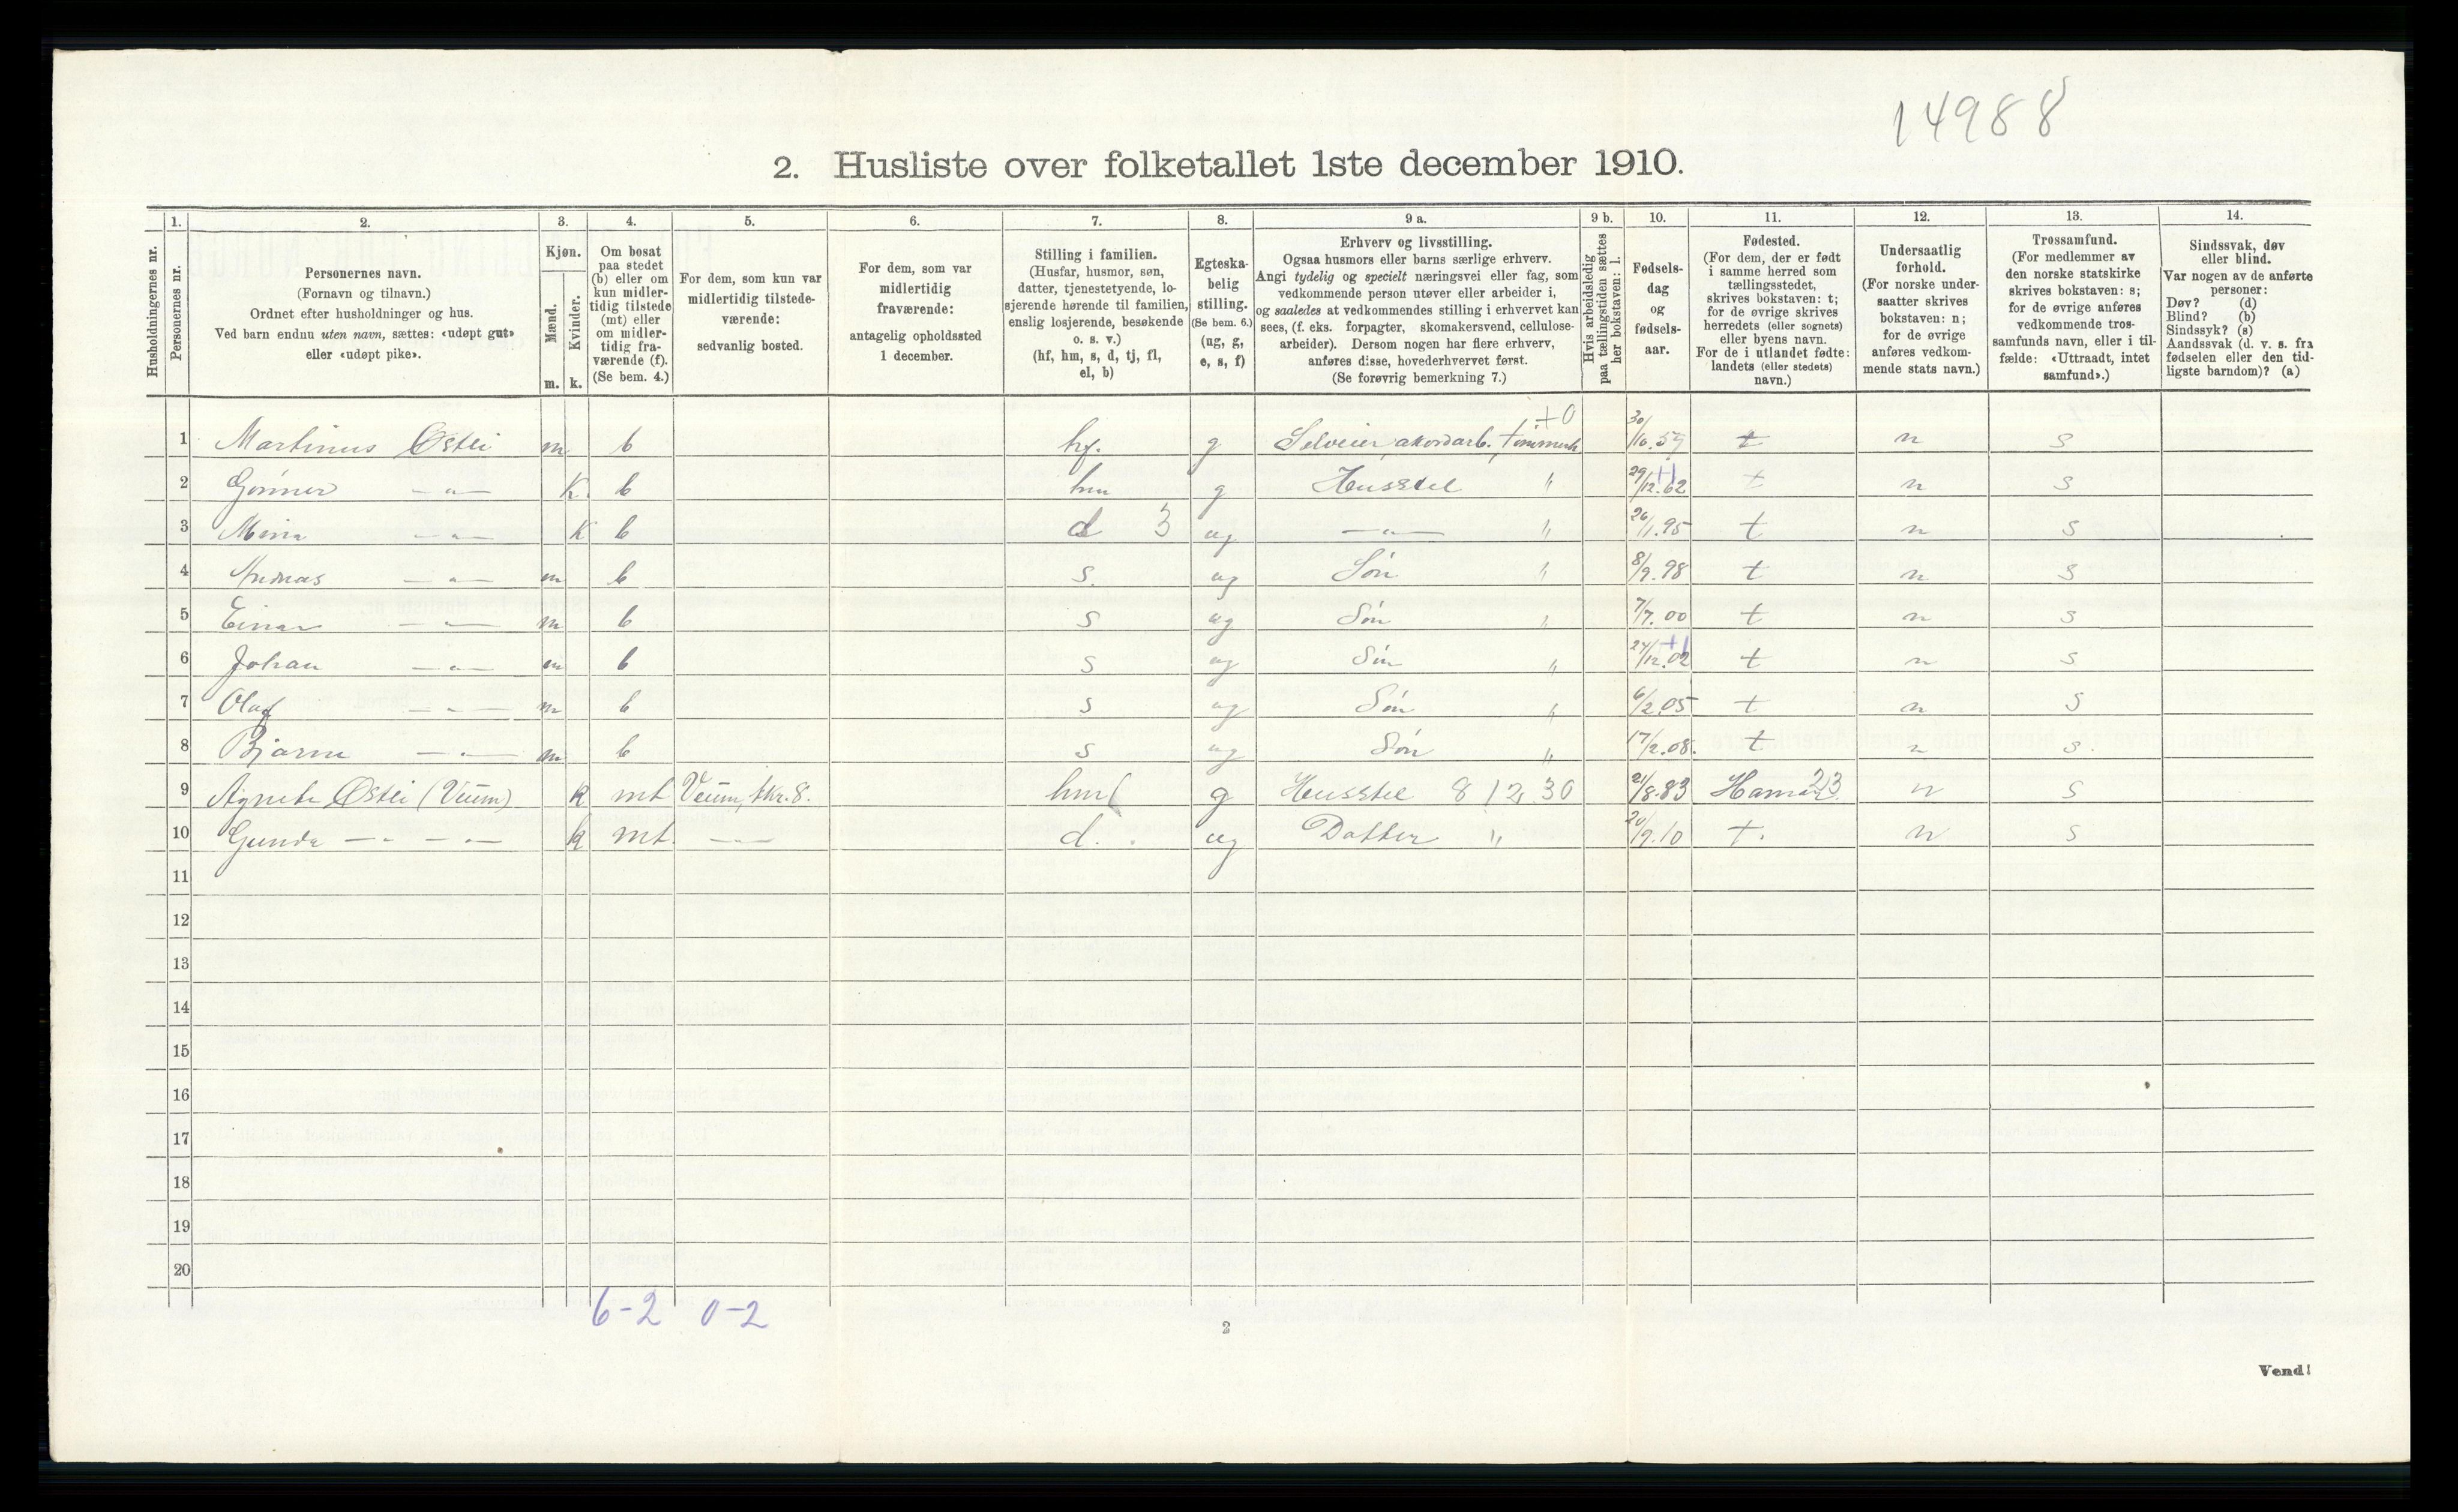 14988
2. Husliste over folketallet 1ste december 1910.
Husholdningernes nr.
1. Personernes nr.
2. Personernes navn.
(Fornavn og tilnavn.)
Ordnet efter husholdninger og hus.
Ved barn endnu uten navn, sættes: «udøpt gut»
eller «udøpt pike».
3. Kjøn.
Mænd. Kvinder.
m. k.
4. Om bosat
paa stedet
(b) eller om
kun midler-
tidig tilstede
(mt) eller
om midler-
tidig fra-
værende (f).
(Se bem. 4.)
5. For dem, som kun var
midlertidig tilstede-
værende:
sedvanlig bosted.
6. For dem, som var
midlertidig
fraværende:
antagelig opholdssted
1 december.
7. Stilling i familien.
(Husfar, husmor, søn,
datter, tjenestetyende, lo-
sjerende hørende til familien,
enslig losjerende, besøkende
o. s. v.)
(hf, hm, s, d, tj, fl,
el, b)
8. Egteska-
belig
stilling.
(Se bem. 6.)
(ug, g,
e, s, f)
9 a. Erhverv og livsstilling.
Ogsaa husmors eller barns særlige erhverv.
Angi tydelig og specielt næringsvei eller fag, som
vedkommende person utøver eller arbeider i,
og saaledes at vedkommendes stilling i erhvervet kan
sees, (f. eks. forpagter, skomakersvend, cellulose-
arbeider). Dersom nogen har flere erhverv,
anføres disse, hovederhvervet først.
(Se forøvrig bemerkning 7.)
9 b. Hvis arbeidsledig
paa tællingstiden sættes
her bokstaven: l.
10. Fødsels-
dag
og
fødsels-
aar.
11. Fødested.
(For dem, der er født
i samme herred som
tællingsstedet,
skrives bokstaven: t;
for de øvrige skrives
herredets (eller sognets)
eller byens navn.
For de i utlandet fødte:
landets (eller stedets)
navn.)
12. Undersaatlig
forhold.
(For norske under-
saatter skrives
bokstaven: n;
for de øvrige
anføres vedkom-
mende stats navn.)
13. Trossamfund.
(For medlemmer av
den norske statskirke
skrives bokstaven: s;
for de øvrige anføres
vedkommende tros-
samfunds navn, eller i til-
fælde: «Uttraadt, intet
samfund».)
14. Sindssvak, døv
eller blind.
Var nogen av de anførte
personer:
Døv? (d)
Blind? (b)
Sindssyk? (s)
Aandssvak (d. v. s. fra
fødselen eller den tid-
ligste barndom)? (a)
+0
1 Martinus Østli m b hf. g Selveier, akordarb. 30/10. 57 t n s
2 — " — K b hm g Husstel " 29/12. 62 +1 t n s
3 Mina — " — K b d 3 ug — " — " 26/1. 95 t n s
4 Andreas — " — m b s. ug Søn " 8/9. 98 t n s
5 Einar — " — m b s ug Søn " 7/7. 00 t n s
6 Johan — " — m b s ug Søn " 27/12. 02 +1 t n s
7 Olaf — " — m b s ug Søn " 6/2. 05 t n s
8 Bjarne — " — m b s ug Søn " 17/2. 08. t n s.
9 Agnete Østli (Veum) k mt Veum, tkr. 8. hm g Husstel 8 12 30 21/8. 83 Hamar 23 n s
10 Gunda — " — — " — k mt. — " — d. ug Datter " 20/9. 10 t. n s
11
12
13
14
15
16
17
18
19
20
6-2 0-2
2
Vend!